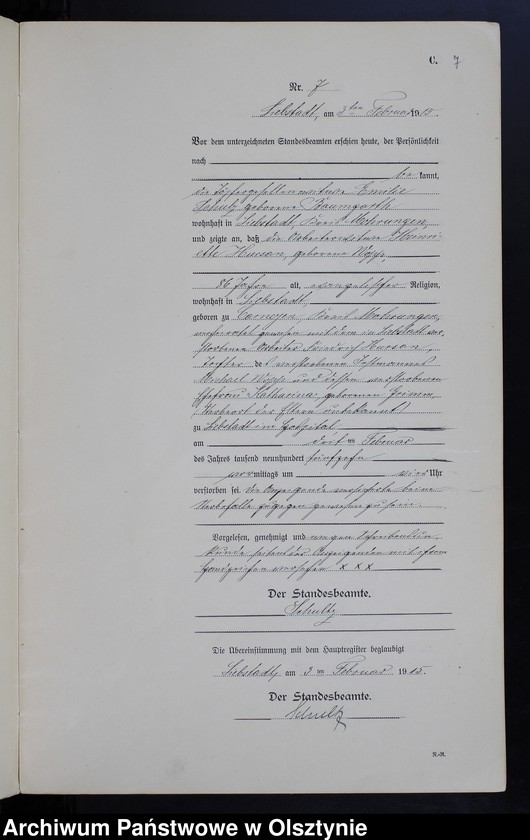 C. 7
Nr. 7
Liebstadt, am 3ten Februar 1915.
Vor dem unterzeichneten Standesbeamten erschien heute, der Persönlichkeit
nach
be kannt,
die Töpfergesellenwitwe Emilie
Schulz geborene Baumgarth
wohnhaft in Liebstadt, Kreis Mohrungen,
und zeigte an, daß die Arbeiterwitwe Heinri-
ette geborene
86 Jahre alt, evangelischer Religion,
wohnhaft in Liebstadt,
geboren zu Kreis Mohrungen,
verheiratet gewesen mit dem in Liebstadt ver-
storbenen Arbeiter Friedrich
Tochter des verstorbenen
Michael und dessen verstorbenen
Ehefrau Katharina, geborenen Grimm,
der Eltern unbekannt
zu Liebstadt im Hospital
am dritten Februar
des Jahres tausend neunhundert fünfzehn
vormittags um vier Uhr
verstorben sei. Die Anzeigende beim
Sterbefalle zugegen gewesen zu sein.
Vorgelesen, genehmigt und wegen Schreibensun-
kunde seitens der Anzeigenden mit ihren
Handzeichen versehen x x x
Der Standesbeamte.
Schultz
Die Übereinstimmung mit dem Hauptregister beglaubigt
Liebstadt, am 3 ten Februar 1915.
Der Standesbeamte.
Schultz
R.-R.
Archiwum Państwowe w Olsztynie